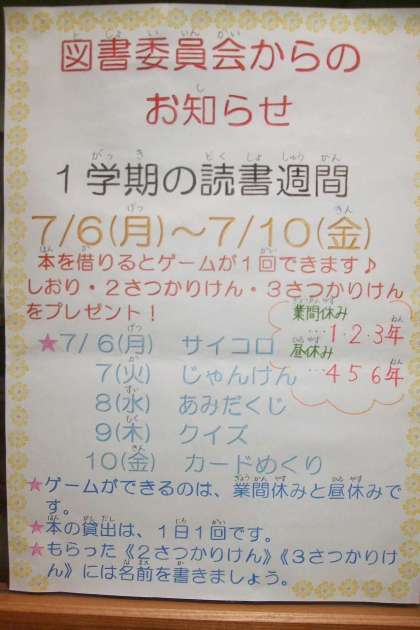 図書委員会からの
お知らせ
1学期の読書週間
7/6(月)～7/10(金)
本を借りるとゲームが1回できます♪
しおり・2さつかりけん・3さつかりけん
をプレゼント！
業間休み
…1.2.3年
昼休み
…4 5 6年
★7/6(月) サイコロ
7(火) じゃんけん
8(水) あみだくじ
9(木) クイズ
10(金) カードめくり
★ゲームができるのは、業間休みと昼休みで
す。
★本の貸出は、1日1回です。
★もらった《2さつかりけん》《3さつかりけ
ん》には名前を書きましょう。